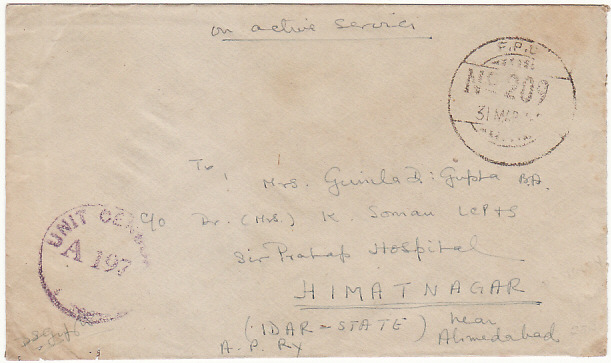 on active service
F.P.O
No 209
31 MAR
To
Mrs. Gupta B.A.
C/o Dr. (Mrs.) K. Soman LCP+S
Sir Pratap Hospital
HIMATNAGAR
(IDAR-STATE) near
Ahmedabad
A.P. Ry
UNIT CENSOR
A 197